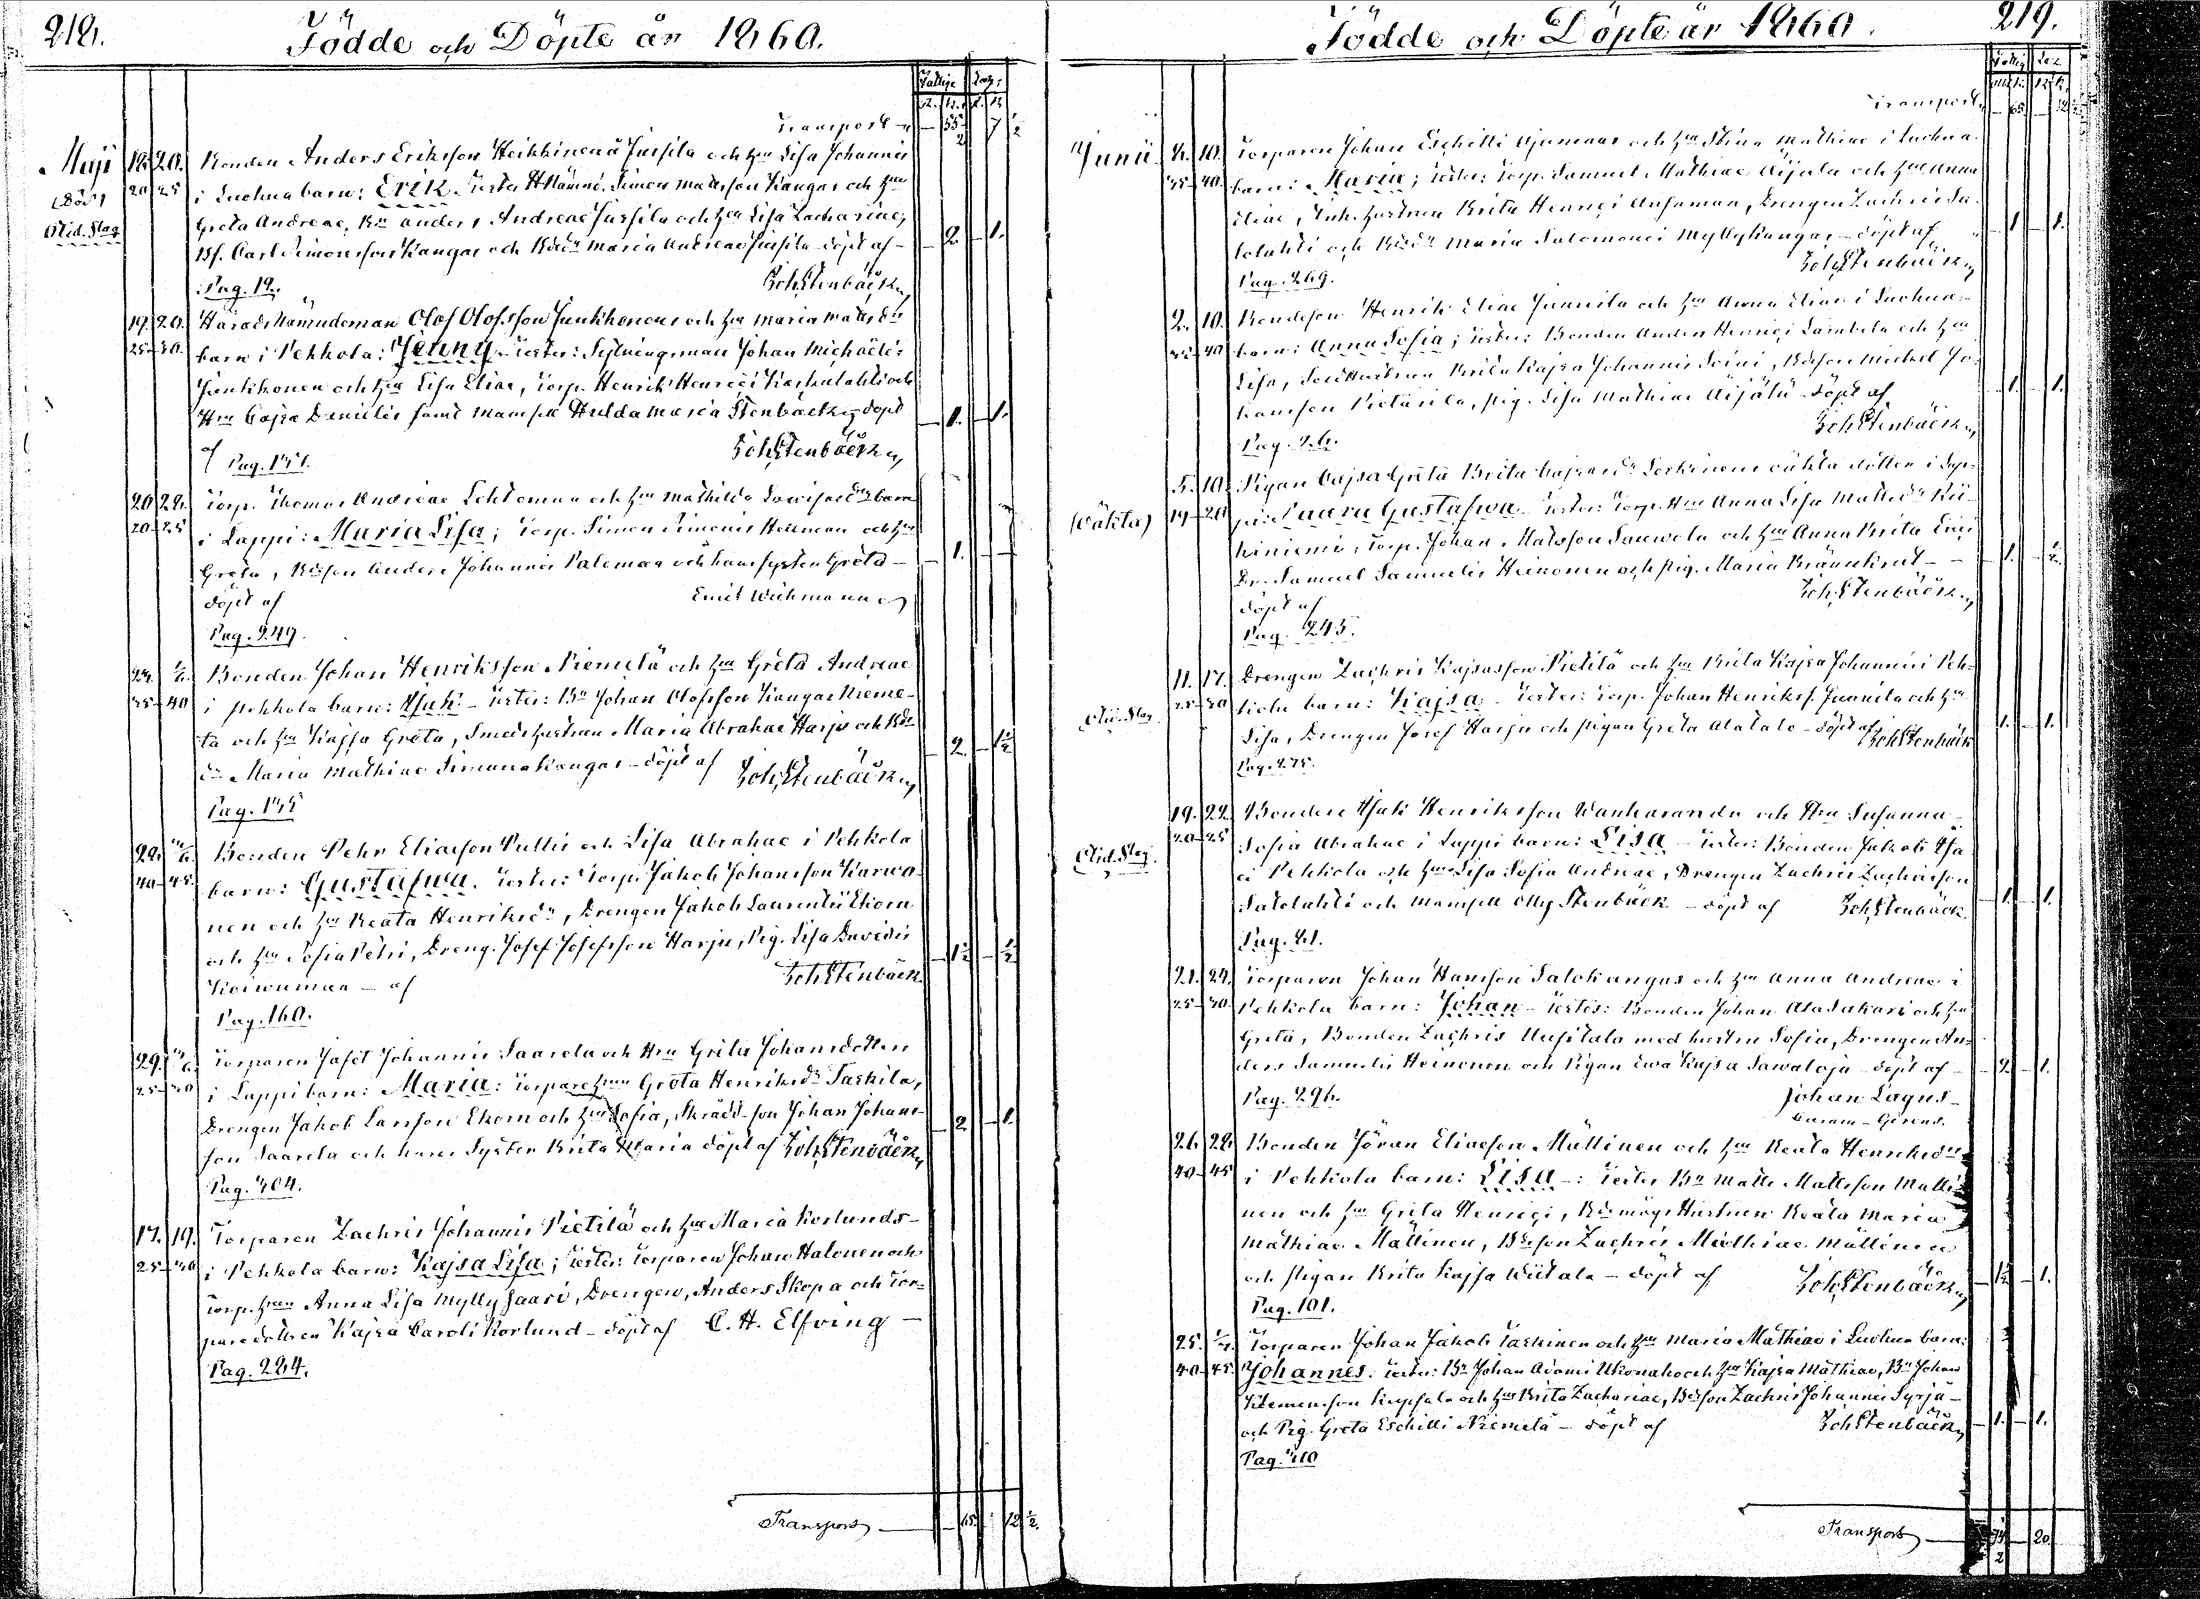 218.
Födde och Döpte år 1860.
Fattige Laz:
Transport — 55 2 7 1/2
Maji 18. 20. Bonden Anders Eriksson Heikkinenä Jussila och Hu Lisa Johannis
20 25 i Luohua barn: Erik. Testes H Nämnd. Simon Matsson Kangas och Hu
Oäid. Slag
Greta Andreae, Bn Anders Andreae Jussila och Hu Lisa Zachariae,
Bs. Carl Simonsson Kangas och Bdr Maria Andreae Jussila döpt af — 2. — 1.
Pag. 12. Joh. Stenbäck
19. 20. Härads Nämndeman Olof Olofsson Junkkonen och Hu Maria Matsdr
25–30. barn i Pehkola: Jenny. Testes: Sytningsman Johan Michaelis
Junkkonen och Hu Lisa Eliae, Torp. Henrik Henrici Karhulahti och
Hu Cajsa Danielis samt Mamsell Hulda Maria Stenbäck, döpt — 1. — 1.
af Joh. Stenbäck
Pag. 171.
20 28. Torp. Thomas Andreae Lehtomaa och Hu Mathilda barn
20–25 i Lappi: Maria Lisa; Torp. Simon Simonis Heikman och Hu
Greta, Bdeson Anders Johannis Palomaa och hans syster Greta — 1. —
döpt af Emil Wichmann
Pag. 249.
Bonden Johan Henriksson Niemelä och Hu Greta Andreae
35–40 i Pehkola barn: Isak – Testes: Bn Johan Olofsson Kangas Nieme-
lä och Hu Kajsa Greta, Smeds hustrun Maria Abrahae Harju och Bde
dr Maria Mathiae Simunakangas – döpt af Joh. Stenbäck — 2. — 1 1/2
Pag. 155
28. Bonden Pehr Eliaeson Pullis och Lisa Abrahae i Pehkola
40–45. barn: Gustafwa. Testes: Torp. Jakob Johansson Karwo-
nen och Hu Beata Henriksdr, Drengen Jakob Laurentii Ekorn
och Hu Sofia Petri, Dreng. Josef Josefsson Harju, Pig. Lisa Davidis — 1 1/2 — 1/2
Koiwumaa – af Joh. Stenbäck
Pag. 160.
29. Torparen Jafet Johannis Saarela och Hu Greta Johansdotter
25–30 i Lappi barn: Maria: Torpare Hun Greta Henriksdr Taskila,
Drengen Jakob Larsson Ekorn och Hu Sofia, Skrädd. son Johan Johans-
son Saarela och hans Syster Brita Maria döpt af Joh. Stenbäck — 2 — 1.
Pag. 304.
17. 19. Torparen Zachris Johannis Pietilä och Hu Maria Korlunds–
25–30 i Pehkola barn: Kajsa Lisa; Testes: Torparen Johan Halonen och
Torp. Hun Anna Lisa Myllysaari, Drengen, Anders Skopa och Tor-
paredottren Kajsa Caroli Korlund – döpt af C. H. Elfving —
Pag. 284.
Transport — 65. 12 1/2.
Födde och Döpte år 1860. 219.
Fattig Laz
Transport — 65 12 1/2
Junii 4. 10. Torparen Johan Eschilli Ojamaa och Hu Stina Mathiae i Luohua
35–40. barn: Maria; Testes: Torp. Samuel Mathiae Äijälä och Hu Anna
Eliae, Enk. hustrun Brita Henrici Anjamaa, Drengen Zachris Sa-
lolahti och Bdedr Maria Salomonis Myllykangas – döpt af — 1 — 1.
Pag. 269. Joh. Stenbäck
2. 10. Bondeson Henrik Eliae Junnila och Hu Anna Eliae i Luohua
35–40 barn: Anna Sofia; Testes: Bonden Anders Henrici Lambela och Hu
Lisa, Sold. Hustrun Brita Kajsa Johannis Soini, Bdeson Michel Jo-
hansson Pietarila, pig. Lisa Mathiae Äijälä döpt af — 1. — 1.
Joh. Stenbäck
Pag. 26.
5. 10. Pigan Cajsa Greta Brita Cajsasdr oäkta dotter i Lap-
(oäkta) 19–20 pi: Laura Gustafwa – Testes: Torp. Hu Anna Lisa Mattsdr Kii-
kiniemi, Torp. Johan Matsson Sauwola och Hu Anna Brita Erici
Dr. Samuel Samuelis Heinonen och pig. Maria Brännkrut – — 1. — 1/2
döpt af Joh. Stenbäck
Pag. 245.
11. 17. Drengen Zachris Kajsasson Pietilä och Hu Brita Kajsa Johannis i Peh-
25–30 kola barn: Kajsa – Testes: Torp. Johan Henrikss. Junnila och Hu
Oäid. Slag
Lisa, Drengen Josef Harju och pigan Greta Alatalo – döpt af Joh. Stenbäck 1. — 1.
Pag. 275.
19. 22. Bonden Isak Henriksson Wanharanda och Hu Susanna
20–25 Sofia Abrahae i Lappi barn: Lisa – Testes: Bonden Jakob
Oäid. Slag.
i Pehkola och Hu Lisa Sofia Andreae, Drengen Zachris Zachrisson
Salolahti och Mamsell Olly Stenbäck – döpt af Joh. Stenbäck — 1. — 1.
Pag. 41.
21. 24. Torparen Johan Hansson Salokangas och Hu Anna Andreae i
25–30 Pehkola barn: Johan – Testes: Bonden Johan Alasakari och Hu
Greta, Bonden Zachris Uusitalo med hustru Sofia, Drengen An-
ders Samuelis Heinonen och Pigan Ewa Kajsa Sawaloja – döpt af — 2. — 1.
Pag. 296. Johan Lagus
26. 28. Bonden Jöran Eliaeson Mällinen och Hu Beata Henriksdr
40–45 i Pehkola barn: Lisa –: Testes Bn Matts Mattsson Mälli-
nen och Hu Greta Henrici, Bdemågs Hustrun Beata Maria
Mathiae Mällinen, Bdeson Zachris Mathiae Mällinen
och pigan Brita Kajsa Wiitala – döpt af Joh. Stenbäck — 1 1/2 — 1.
Pag. 101.
25. Torparen Johan Jakob Taskinen och Hu Maria Mathiae i Luohua barn:
40–45 Johannes. Testes: Bn Johan Adami Ukonaho och Hu Kajsa Mathiae, Bn Johan
Klemensson och Hu Brita Zachariae, Bdeson Zachris Johannis Syrjä–
och Pig. Greta Eschilli Niemelä – döpt af Joh. Stenbäck — 1. — 1.
Pag. 310
Transport — 74 2 — 20